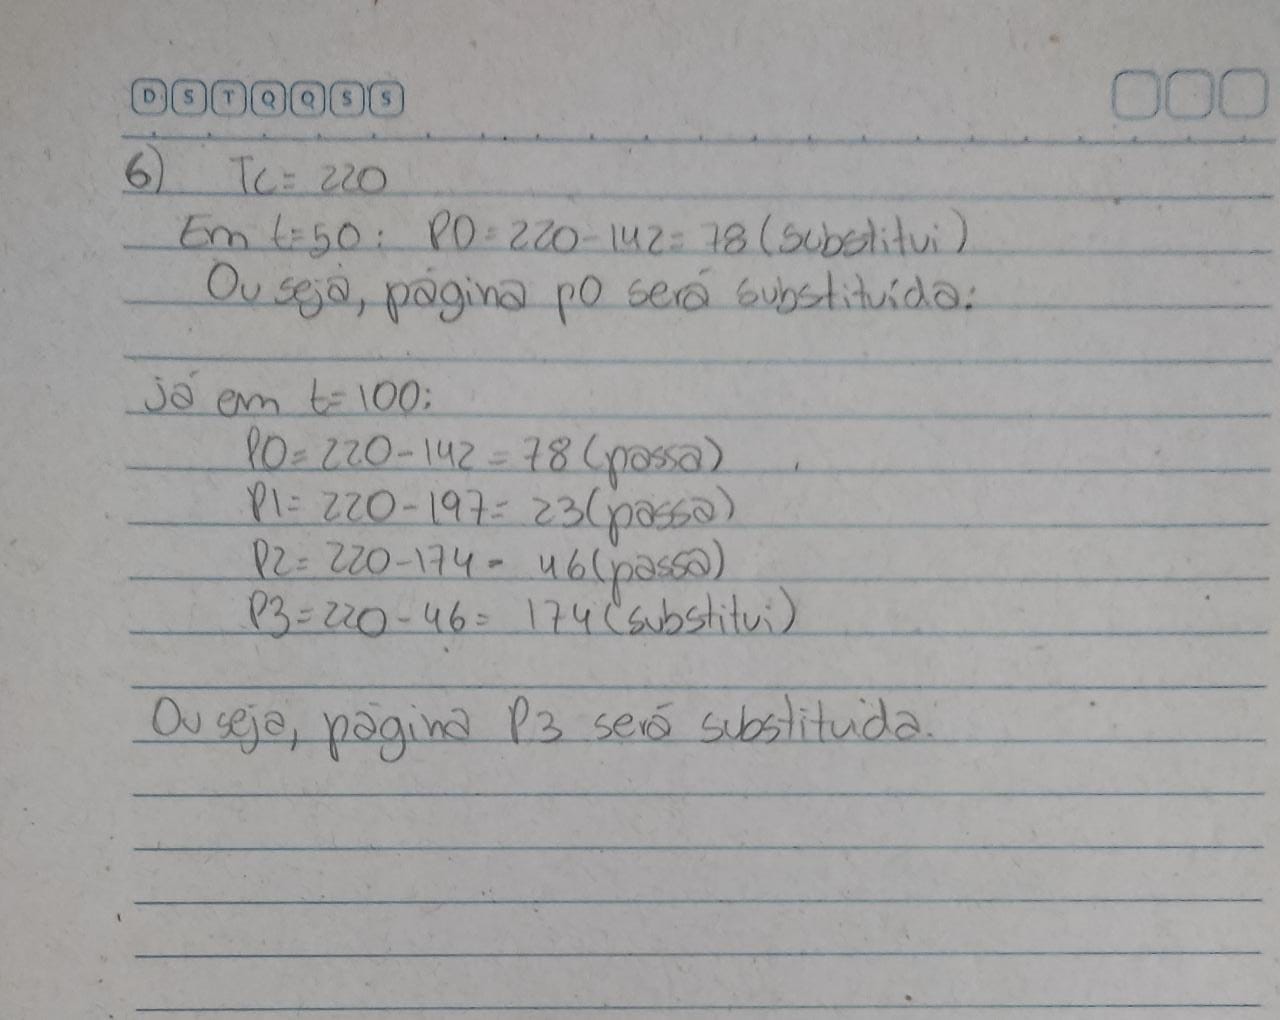 D S T Q Q S S
6) Tc = 220
Em t=50: P0 = 220 - 142 = 78 (substitui)
Ou seja, página p0 será substituída:
já em t=100:
P0 = 220 - 142 = 78 (passa)
P1 = 220 - 197 = 23 (passa)
P2 = 220 - 174 - 46 (passa)
P3 = 220 - 46 = 174 (substitui)
Ou seja, página P3 será substituida.